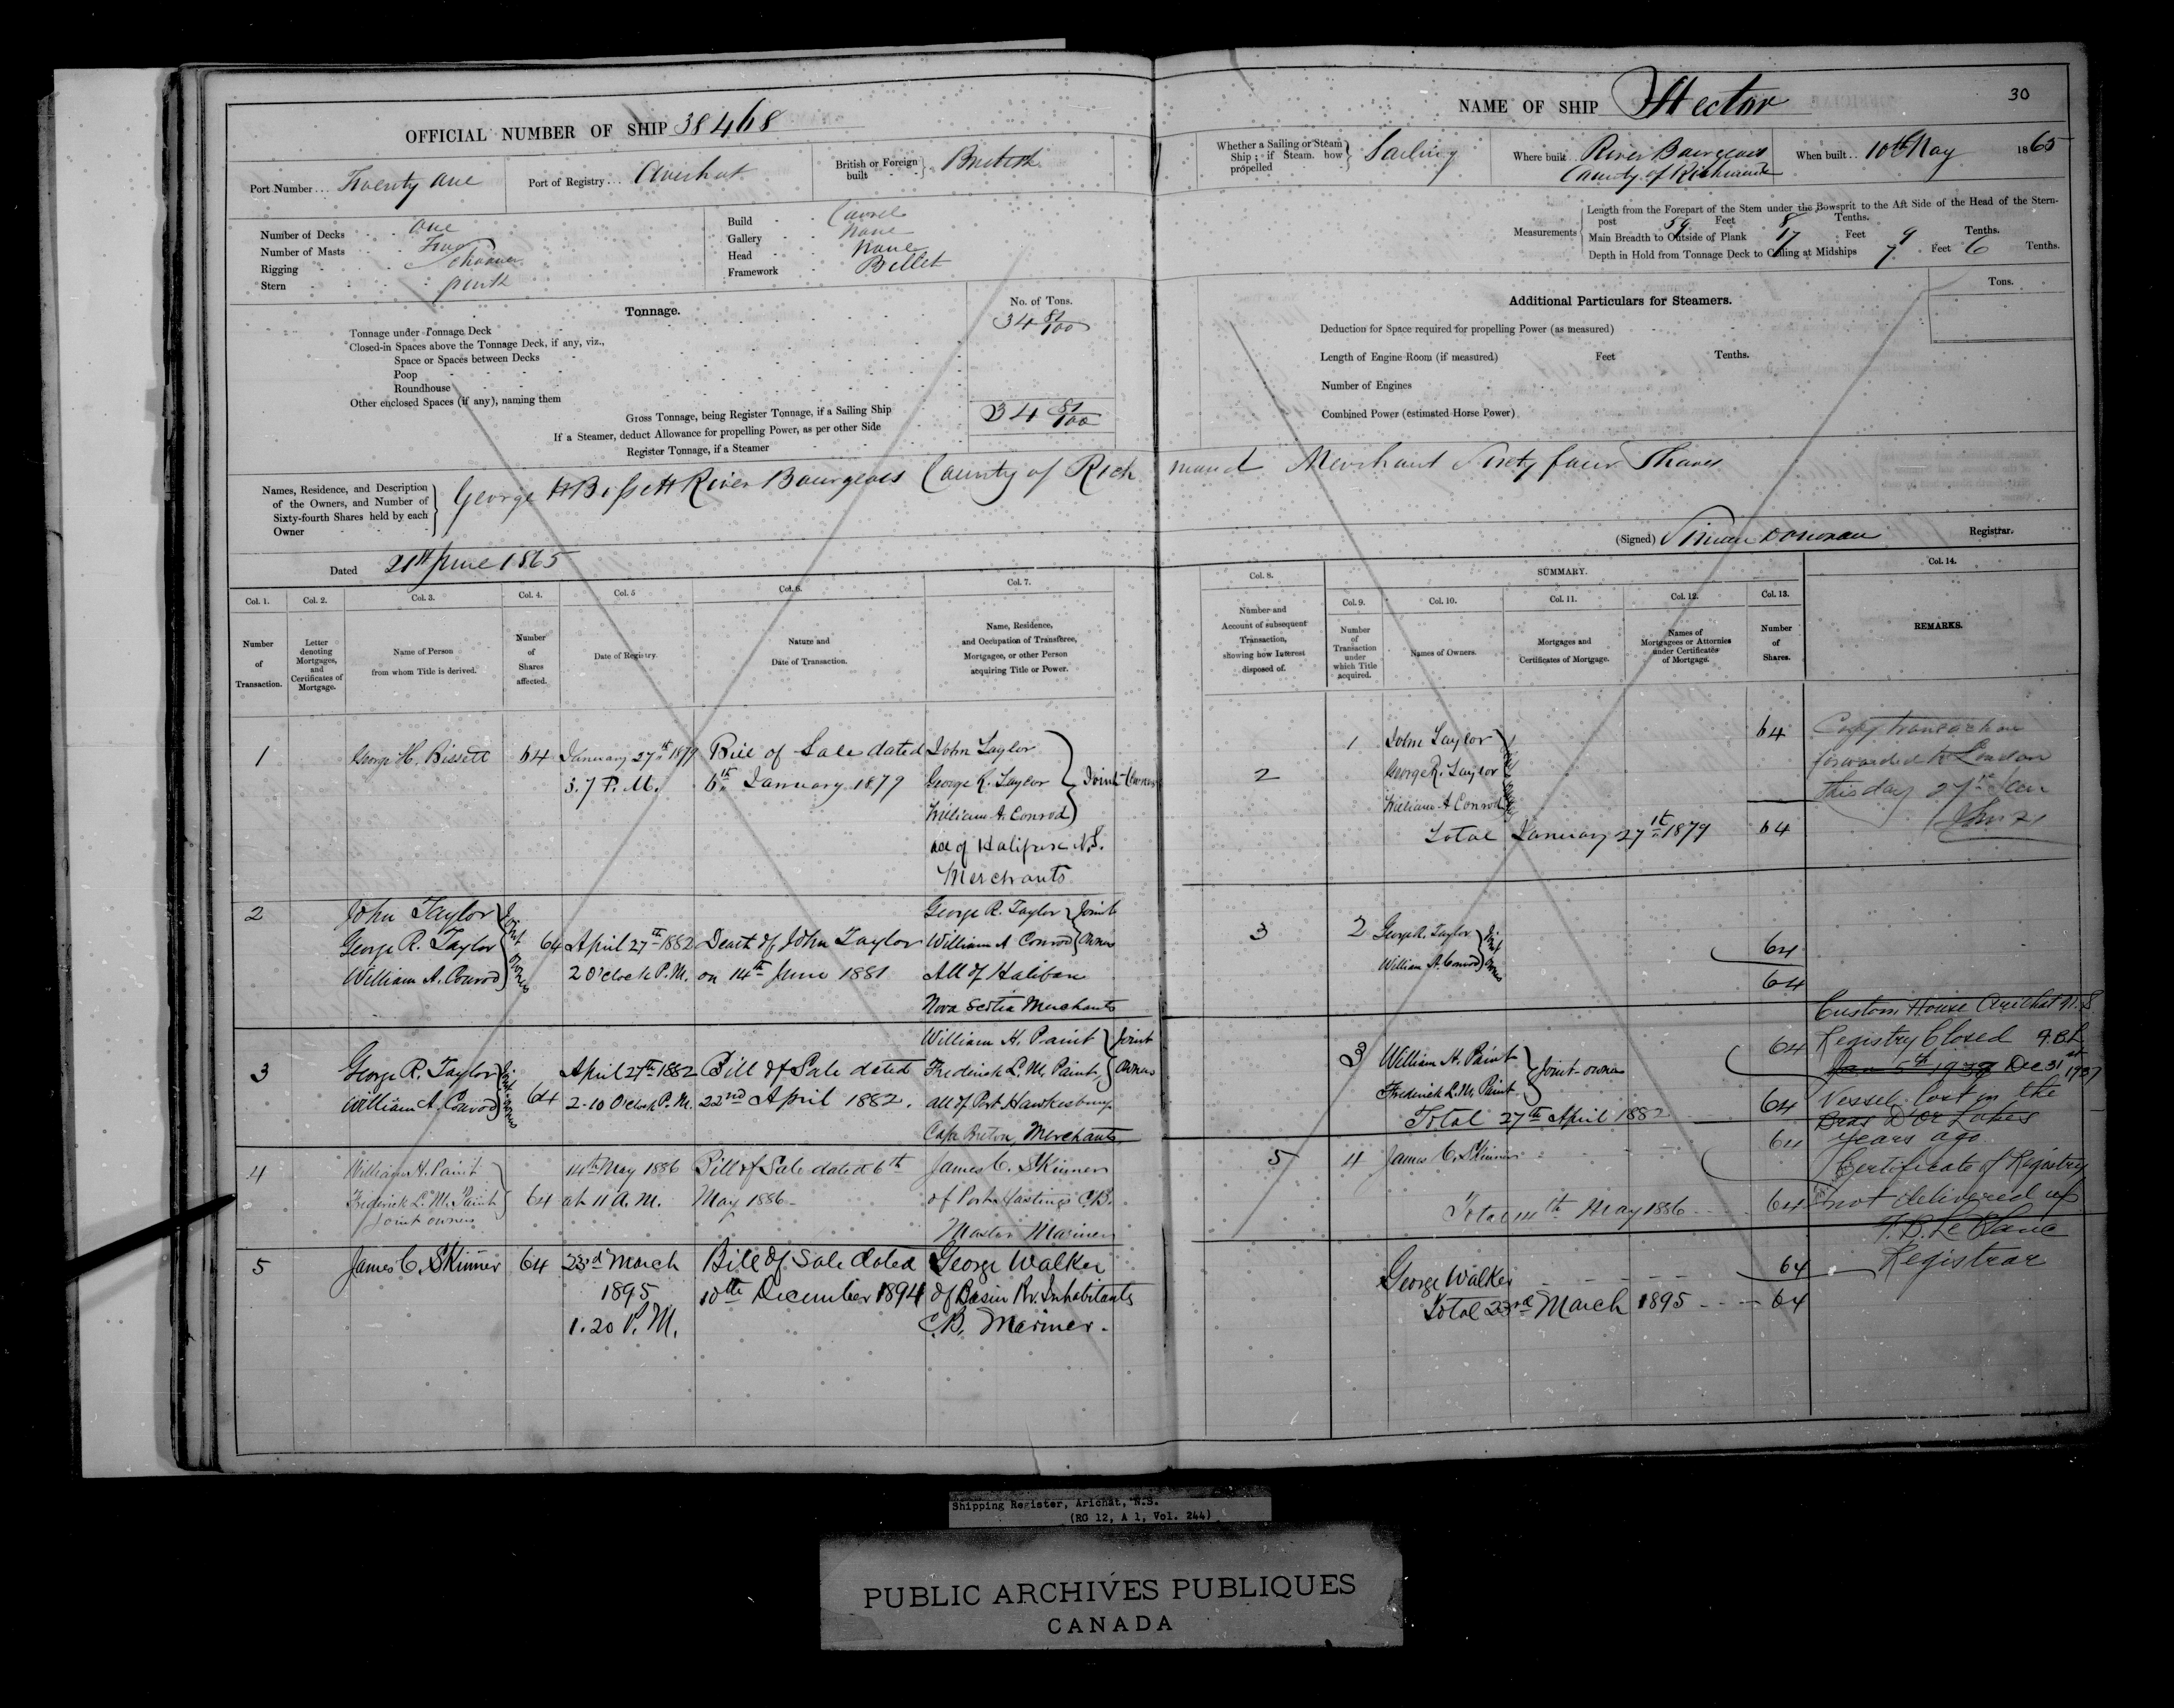 OFFICIAL NUMBER OF SHIP 38468
Port Number... Twenty One
Port of Registry... Arichat
British or Foreign built } British
Number of Decks One
Number of Masts Two
Rigging Schooner
Stern
Build Carvel
Gallery None
Head None
Framework Billet
Tonnage.
No. of Tons.
Tonnage under Tonnage Deck 34 81/100
Closed-in Spaces above the Tonnage Deck, if any, viz.,
Space or Spaces between Decks
Poop
Roundhouse
Other enclosed Spaces (if any), naming them
Gross Tonnage, being Register Tonnage, if a Sailing Ship 34 81/100
If a Steamer, deduct Allowance for propelling Power, as per other Side
Register Tonnage, if a Steamer
NAME OF SHIP Hector
30
Whether a Sailing or Steam Ship; if Steam how propelled } Sailing
Where built River Bourgeois
County of Richmond
When built.. 10th May 1865
Measurements
Length from the Forepart of the Stem under the Bowsprit to the Aft Side of the Head of the Stern-
post 59 Feet 8 Tenths.
Main Breadth to Outside of Plank 17 Feet 9 Tenths.
Depth in Hold from Tonnage Deck to Ceiling at Midships 7 Feet 6 Tenths.
Additional Particulars for Steamers.
Tons.
Deduction for Space required for propelling Power (as measured)
Length of Engine Room (if measured) Feet Tenths.
Number of Engines
Combined Power (estimated Horse Power)
Names, Residence, and Description
of the Owners, and Number of
Sixty-fourth Shares held by each
Owner
George H Bissett River Bourgeois County of Richmond Merchant Sixty four Shares
Dated 21st June 1865
(Signed) Donovan Registrar.
SUMMARY.
Col. 1.
Number of Transaction.
Col. 2.
Letter denoting Mortgages, and Certificates of Mortgage.
Col. 3.
Name of Person from whom Title is derived.
Col. 4.
Number of Shares affected.
Col. 5
Date of Registry.
Col. 6.
Nature and Date of Transaction.
Col. 7.
Name, Residence, and Occupation of Transferee, Mortgagee, or other Person acquiring Title or Power.
Col. 8.
Number and Account of subsequent Transaction, showing how Interest disposed of.
Col. 9.
Number of Transaction under which Title acquired.
Col. 10.
Names of Owners.
Col. 11.
Mortgages and Certificates of Mortgage.
Col. 12.
Names of Mortgagees or Attornies under Certificates of Mortgage.
Col. 13.
Number of Shares.
Col. 14.
REMARKS.
1 George H. Bissett 64 January 27th 1879 Bill of Sale dated John Taylor
3.7 P.M. 6th January 1879 George R. Taylor Joint Owners
William A. Conrod
all of Halifax N.S.
Merchants
2 John Taylor George R. Taylor Joint
George R. Taylor 64 April 27th 1882 Death of John Taylor William A Conrod Owners
William A. Conrod Joint owners 2 O'clock P.M. on 14th June 1881 All of Halifax
Nova Scotia Merchants
William H. Paint Joint
3 George R. Taylor April 27th 1882 Bill of Sale dated Frederick L. M. Paint Owners
William A. Conrod Joint owners 64 2-10 O'clock P.M. 22nd April 1882. all of Port Hawkesbury
Cape Breton, Merchants
4 William H. Paint 14th May 1886 Bill of Sale dated 6th James C. Skinner
Frederick L. M. Paint 64 at 11 A.M. May 1886 of Port Hastings C.B.
Joint owners Master Mariner
5 James C. Skinner 64 23rd March Bill of Sale dated George Walker
1895 10th December 1894 of Basin Rv. Inhabitants
1.20 P.M. C.B. Mariner.
1 John Taylor 64
2 George R. Taylor
William A Conrod
Total January 27th 1879 64
3 2 George R. Taylor Joint
William A. Conrod owners 64
64
3 William H. Paint 64
Frederick L. M. Paint Joint owners
Total 27th April 1882 64
5 4 James C. Skinner 64
Total 14th May 1886 64
George Walker 64
Total 23rd March 1895 64
Copy transaction
forwarded to London
this day 27th Jan
Custom House Arichat N.S.
Registry Closed
Jan 5th Dec 31st 1937
Vessel lost in the
Bras D'Or Lakes
years ago
Certificate of Registry
not delivered up
Le Blanc
Registrar
Shipping Register, Arichat, N.S.
(RG 12, A 1, Vol. 244)
PUBLIC ARCHIVES PUBLIQUES
CANADA